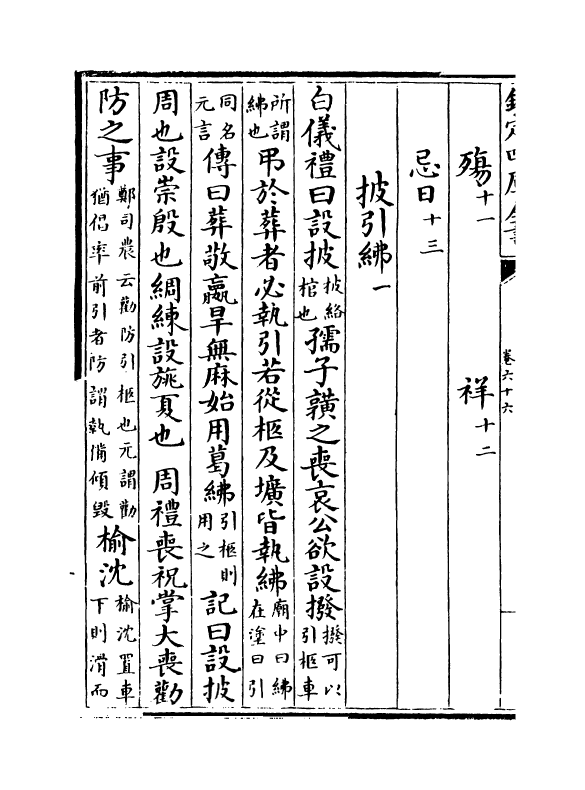 殤十一 祥十二
忌日十三
披引紼一
白儀禮曰設披披絡棺也孺子䵍之喪哀公欲設撥撥可以引柩車
所謂紼也弔於葬者必執引若從柩及壙皆執紼廟中曰紼在塗曰引
同名元言傳曰葬敬嬴旱無麻始用葛紼引柩則用之 記曰設披
周也設崇殷也綢練設旐夏也 周禮喪祝掌大喪勸
防之事鄭司農云勸防引柩也元謂勸猶倡率前引者防謂執備傾毀榆沈榆沈置車下則滑而
卷六十六